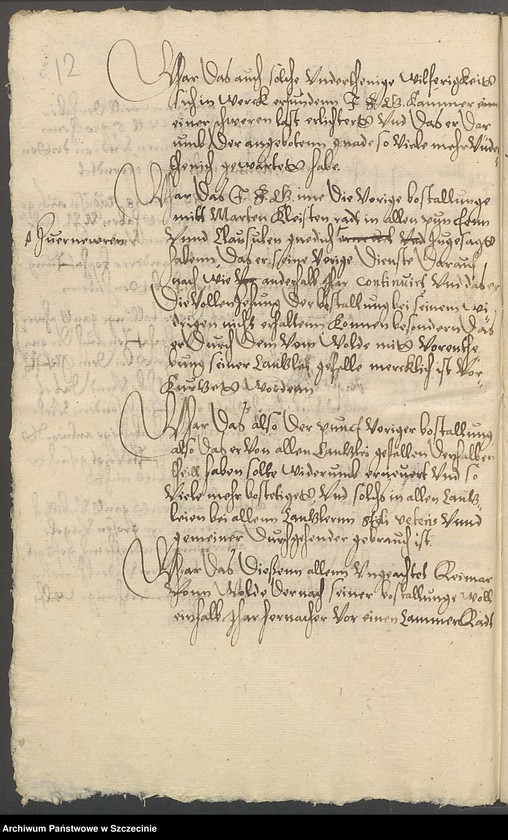 12
War das auch solche Underthenige Wilferigkeit
sich in Werck erfundenn J. F. G. Kammer eine
einer schweren last erlichtert Und das er dar
umb der angebotenn gnade so Viele mehr Unde-
thenich gewartet habe.
War das J. F. G. ime die Vorige bestallunge
mitt Marten Kleisten radt in allen puncten
zuernewren
Unnd Clausulen gnedich zugesagt
habenn, das er seine Vorige Dienste darauff
nach wie anderhalb Jar continuirt Und das er
die Vollenziehung der bestallung bei seinem Wi
drigen nicht erhaltenn können besondern das
er durch dem Vom Wolde mitt Vorenthe
bung seiner Cantzlei gefelle mercklich ist Vor-
kurtzet wordenn
War das also der punct Voriger bestallung
also das er Von allen Cantzlei gefellen denhalben
theil haben solte widerumb erneuert Und so
Viele mehr bestetiget Und solchs in allen Cantz-
leien bei allenn Cantzlernn stili veteris Unnd
gemeiner durchgehender gebrauch ist.
War das diessenn allenn Ungeachtet Reimar
Vonn Wolde dernach seiner bestallunge woll
einhalb Jhar hernacher Vor einen Cammer Radt
Archiwum Państwowe w Szczecinie